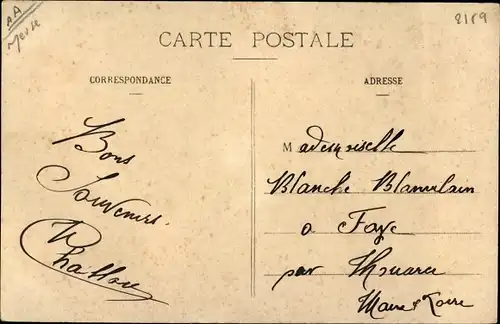 AA
Meuse
2189
CARTE POSTALE
CORRESPONDANCE
ADRESSE
Bons
Souvenirs.
Mademoiselle
Blanche
a Faye
par Thouarcé
Maine & Loire